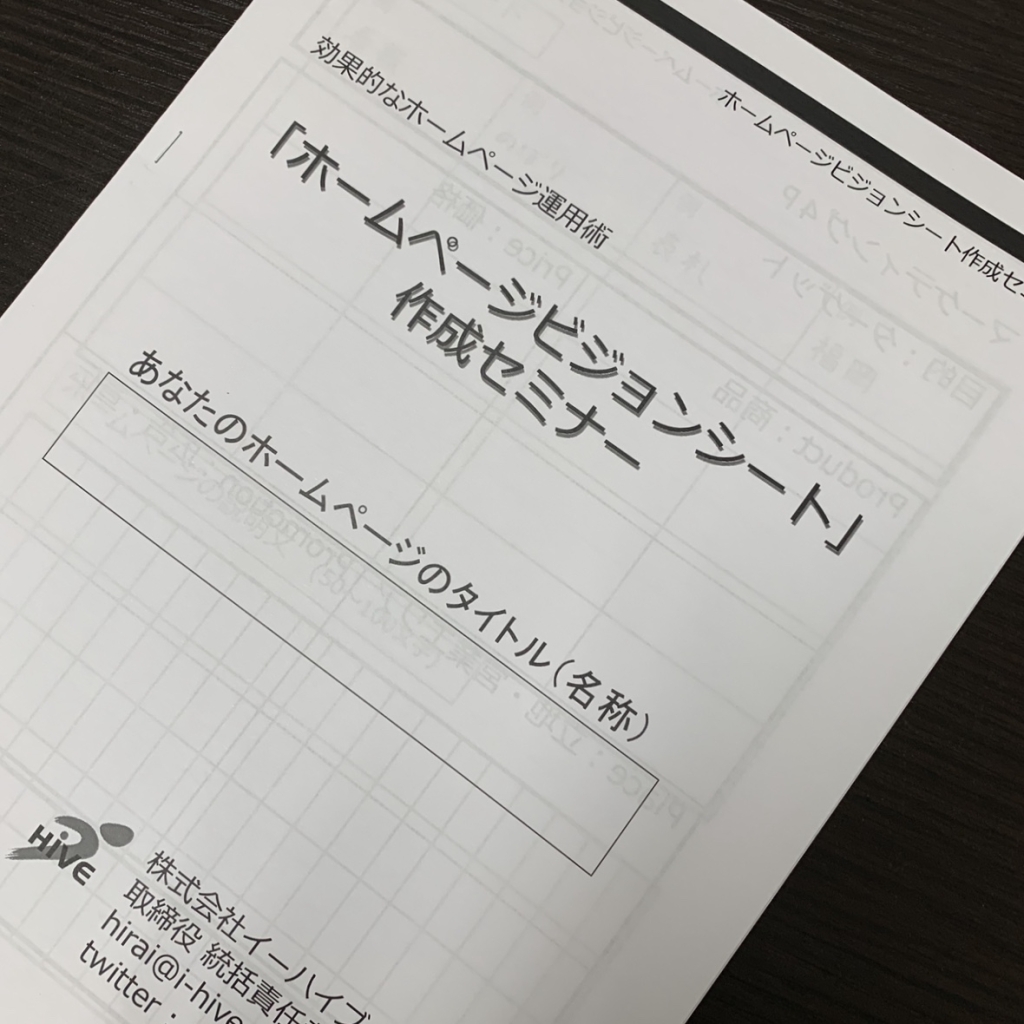 ホームページビジョンシート作成セ
効果的なホームページ運用術
「ホームページビジョンシート」
作成セミナー
あなたのホームページのタイトル（名称）
HiVE
株式会社イーハイブ
取締役 統括責任
hirai@i-hive
twitter :